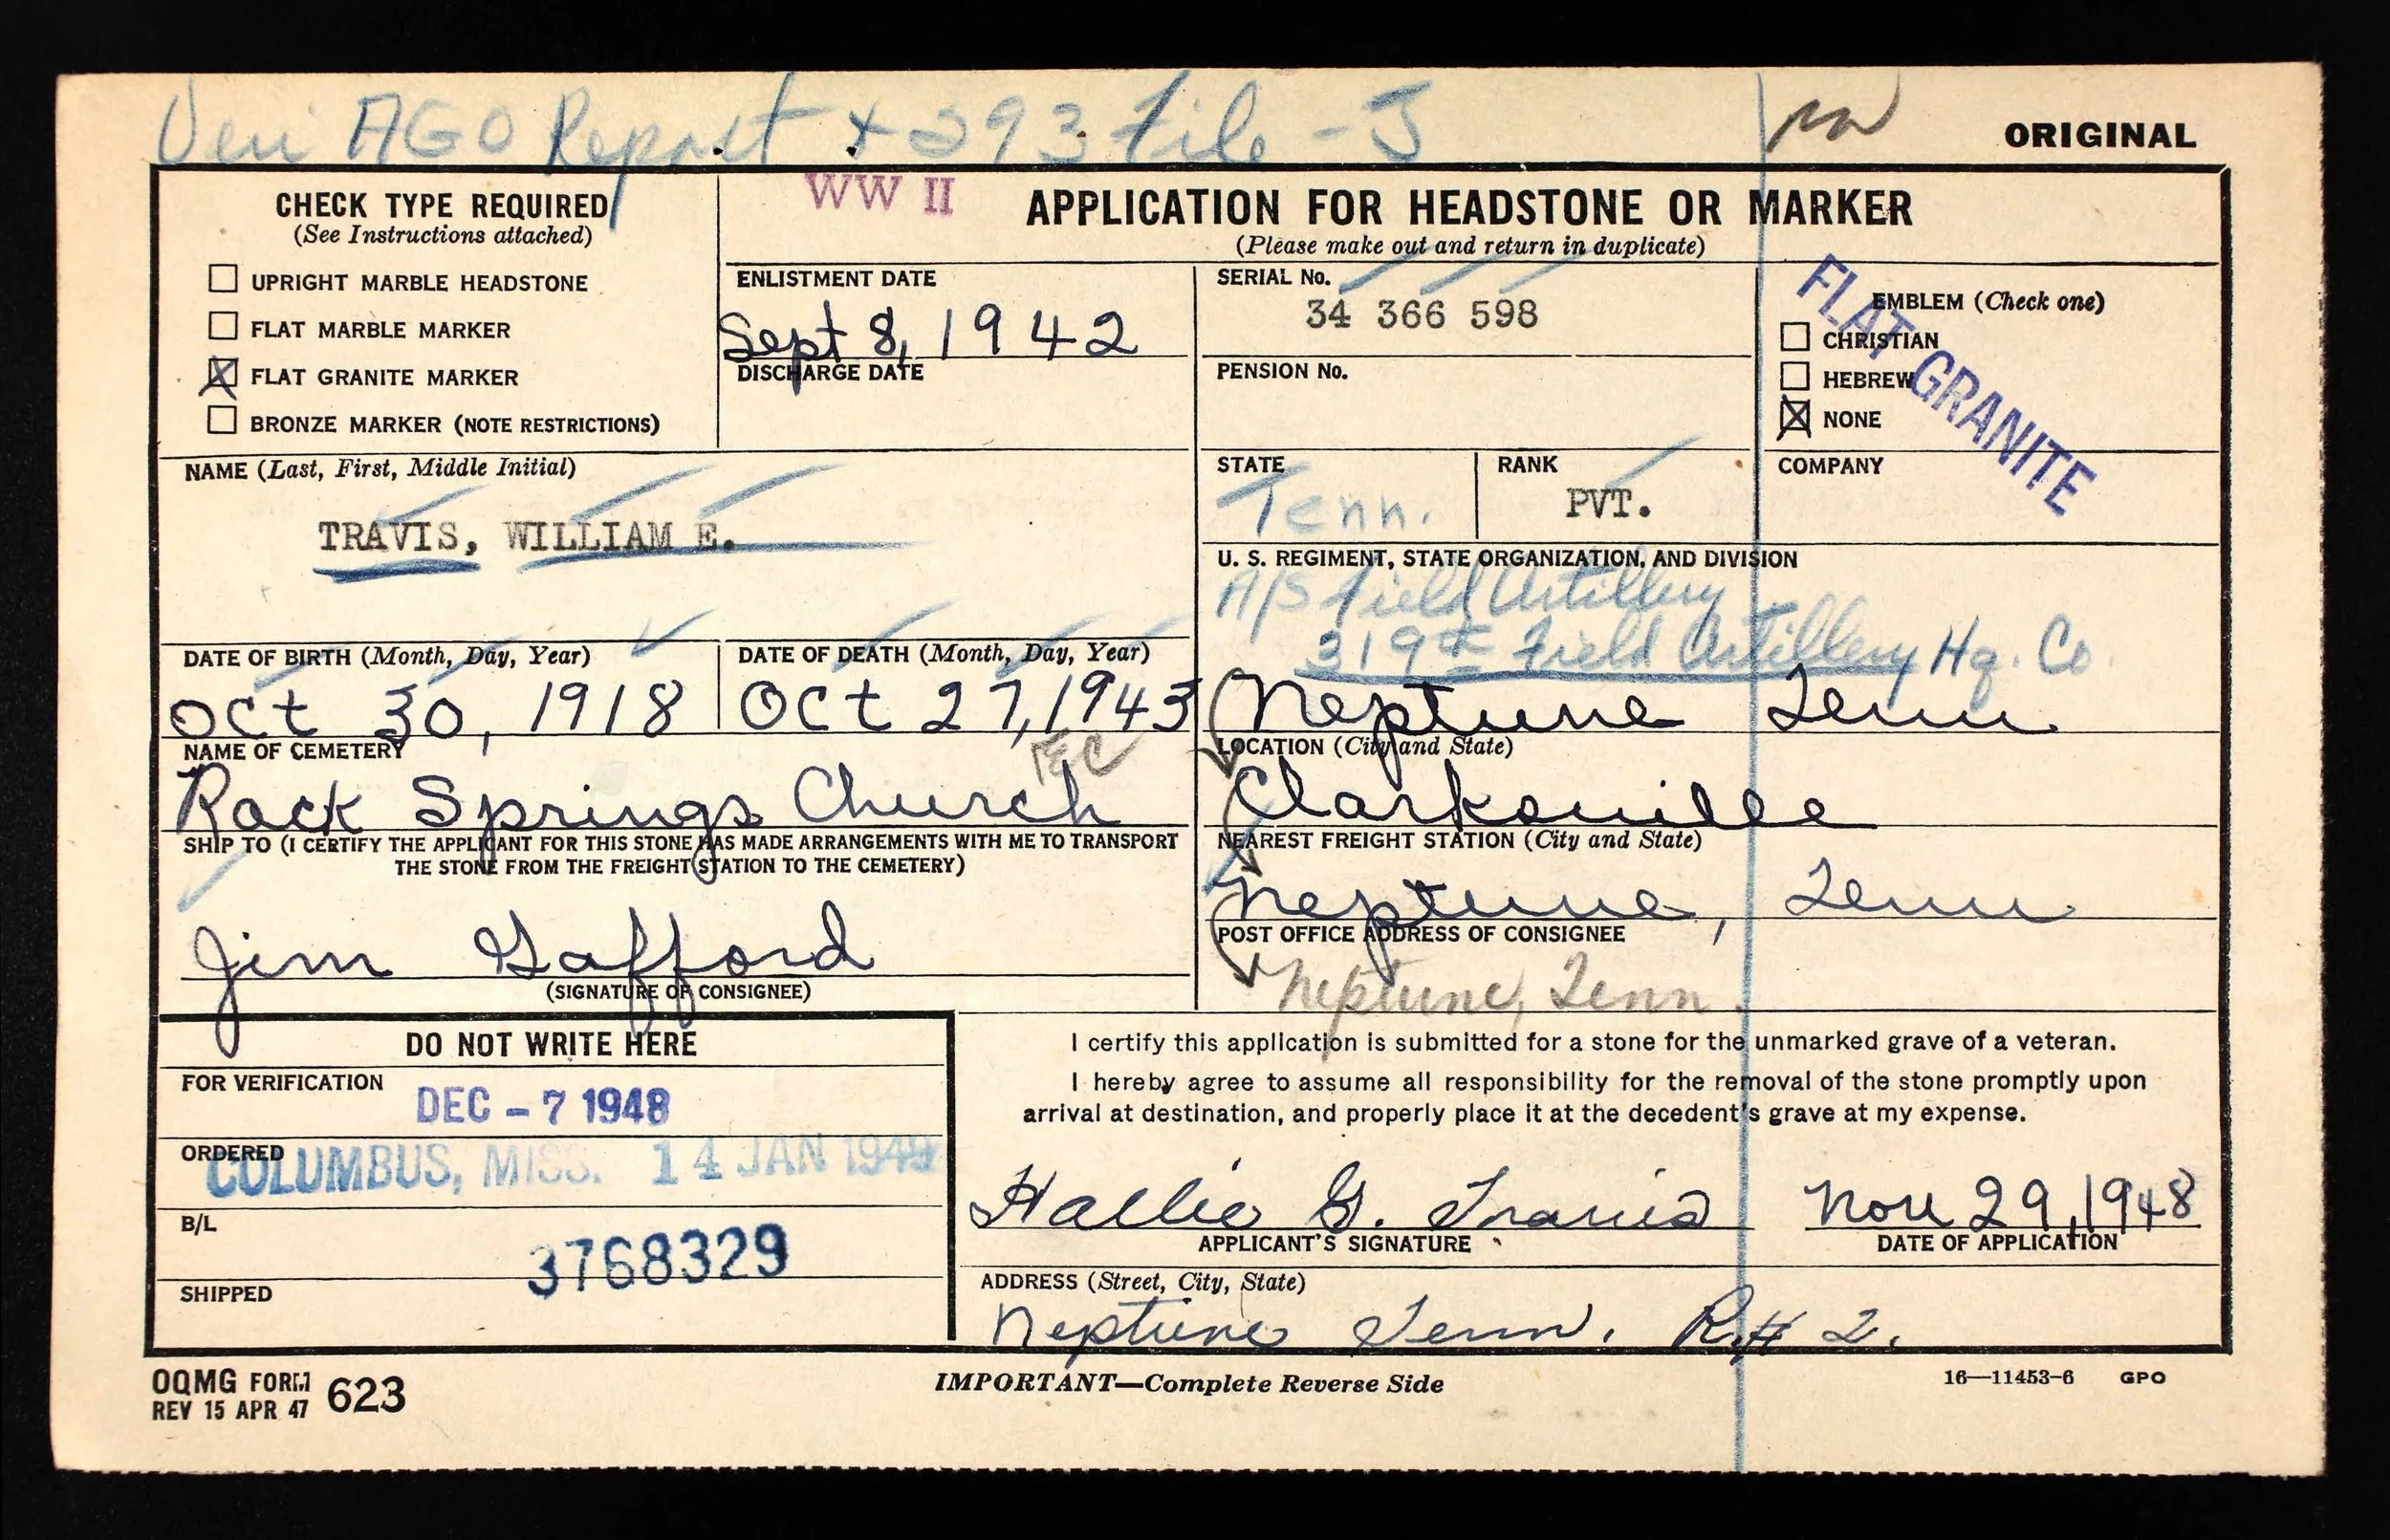 Veri AGO Report + 293 File - J
ORIGINAL
CHECK TYPE REQUIRED
(See Instructions attached)
UPRIGHT MARBLE HEADSTONE
FLAT MARBLE MARKER
X FLAT GRANITE MARKER
BRONZE MARKER (NOTE RESTRICTIONS)
WW II
APPLICATION FOR HEADSTONE OR MARKER
(Please make out and return in duplicate)
ENLISTMENT DATE
Sept 8, 1942
DISCHARGE DATE
SERIAL No.
34 366 598
PENSION No.
EMBLEM (Check one)
CHRISTIAN
HEBREW
X NONE
FLAT GRANITE
NAME (Last, First, Middle Initial)
TRAVIS, WILLIAM E.
STATE
Tenn.
RANK
PVT.
COMPANY
U. S. REGIMENT, STATE ORGANIZATION, AND DIVISION
A/S Field Artillery
319th Field Artillery Hq. Co.
DATE OF BIRTH (Month, Day, Year)
Oct 30, 1918
DATE OF DEATH (Month, Day, Year)
Oct 27, 1943
Neptune Tenn
NAME OF CEMETERY
Rock Springs Church
EC
LOCATION (City and State)
Clarksville
SHIP TO (I CERTIFY THE APPLICANT FOR THIS STONE HAS MADE ARRANGEMENTS WITH ME TO TRANSPORT
THE STONE FROM THE FREIGHT STATION TO THE CEMETERY)
Jim Gafford
(SIGNATURE OF CONSIGNEE)
NEAREST FREIGHT STATION (City and State)
Neptune, Tenn
POST OFFICE ADDRESS OF CONSIGNEE
Neptune, Tenn.
DO NOT WRITE HERE
FOR VERIFICATION
DEC - 7 1948
ORDERED
COLUMBUS, MISS. 14 JAN 1949
B/L
3768329
SHIPPED
I certify this application is submitted for a stone for the unmarked grave of a veteran.
I hereby agree to assume all responsibility for the removal of the stone promptly upon
arrival at destination, and properly place it at the decedent's grave at my expense.
Hallie G. Travis
APPLICANT'S SIGNATURE
Nov 29, 1948
DATE OF APPLICATION
ADDRESS (Street, City, State)
Neptune Tenn. R# 2.
OQMG FORM 623
REV 15 APR 47
IMPORTANT—Complete Reverse Side
16—11453-6 GPO